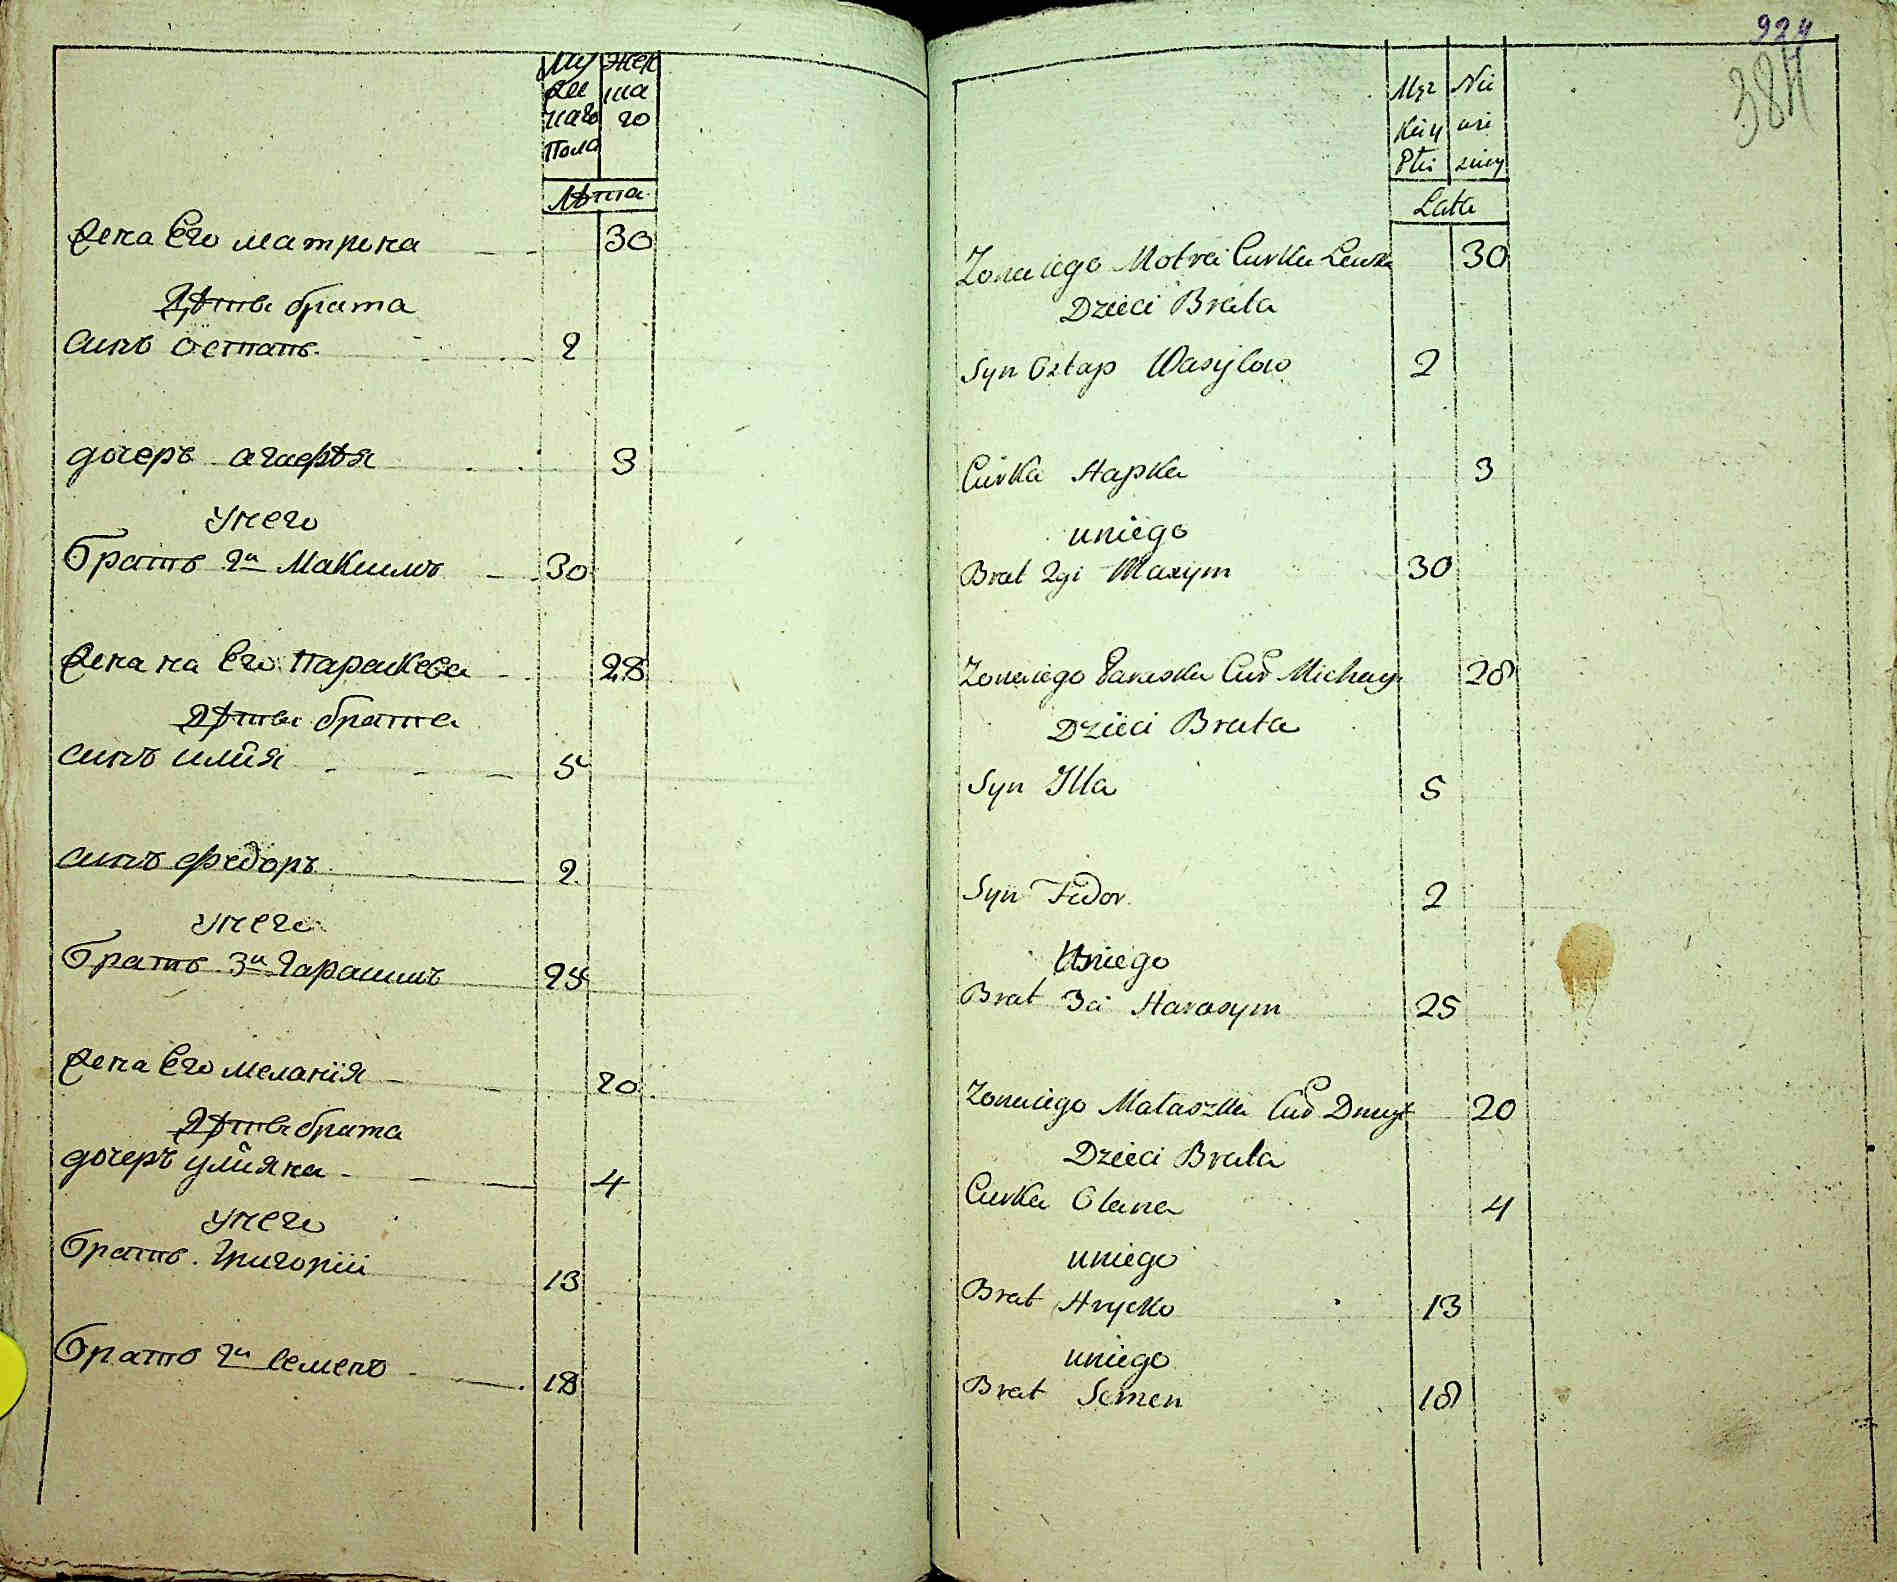 Му жен
жес ска
каго го
Пола
Лѣта
жена Его матрона 30
Дѣти брата
синъ Остапъ 2
дочеръ агафѣя 3
унего
братъ 2й Максимъ 30
жена на Его Параскева 28
Дѣти брата
синъ илия 5
синъ федоръ 2
унего
братъ 3й Гарасимъ 25
жена Его меланія 20
Дѣти брата
дочеръ улияна 4
унего
братъ Григорій 13
братъ 2й Семенъ 18
924
384
Męz Nie
Kiey wie
Płci sciey
Lata
Zona iego Motra Curka Lewka 30
Dzieci Brata
Syn Ostap Wasylow 2
Curka Hapka 3
uniego
Brat 2gi Maxym 30
Zona iego Paraska Cur Michay 28
Dzieci Brata
Syn Illa 5
Syn Fedor 2
Uniego
Brat 3ci Harasym 25
Zona iego Malaszka Cur Dmyt 20
Dzieci Brata
Curka Olana 4
uniego
Brat Hrycko 13
uniego
Brat Semen 18